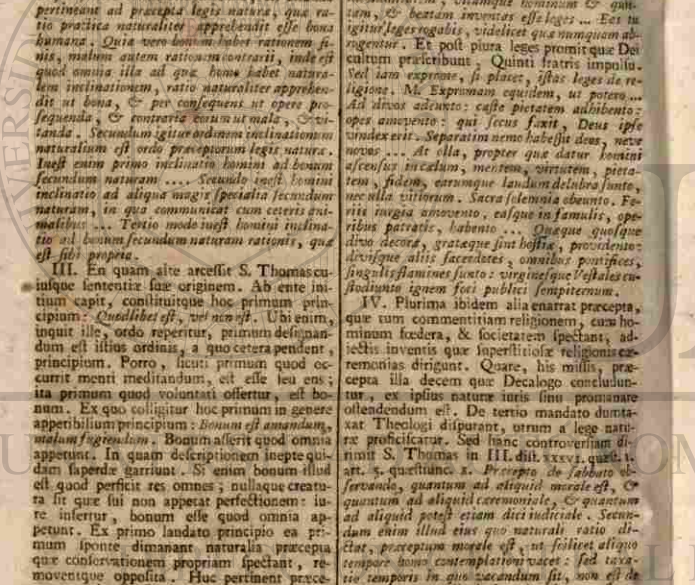 pertineant ad præcepta legis naturæ, quæ ra-
tio practica naturaliter apprehendit esse bona
humana. Quia vero bonum habet rationem fi-
nis, malum autem rationem contrarii, inde est
quod omnia illa ad quæ homo habet natura-
lem inclinationem, ratio naturaliter apprehen-
dit ut bona, & per consequens ut opere pro-
sequenda, & contraria eorum ut mala, & vi-
tanda. Secundum igitur ordinem inclinationum
naturalium est ordo præceptorum legis naturæ.
Inest enim primo inclinatio homini ad bonum
secundum naturam .... Secundo inest homini
inclinatio ad aliqua magis specialia secundum
naturam, in qua communicat cum ceteris ani-
malibus ... Tertio modo inest homini inclina-
tio ad bonum secundum naturam rationis, quæ
est sibi propria.
III. En quam alte arcessit S. Thomas cu-
iusque sententiæ suæ originem. Ab ente ini-
tium capit, constituitque hoc primum prin-
cipium: Quodlibet est, vel non est. Ubi enim,
inquit ille, ordo reperitur, primum designan-
dum est istius ordinis, a quo cetera pendent,
principium. Porro, sicuti primum quod oc-
currit menti meditandum, est esse seu ens;
ita primum quod voluntati offertur, est bo-
num. Ex quo colligitur hoc primum in genere
appetibilium principium: Bonum est amandum,
malum fugiendum. Bonum asserit quod omnia
appetunt. In quam descriptionem inepte qui-
dam saperdæ garriunt. Si enim bonum illud
est quod perficit res omnes; nullaque creatu-
ra sit quæ sui non appetat perfectionem: iu-
re infertur, bonum esse quod omnia ap-
petunt. Ex primo laudato principio ea pri-
mum sponte dimanant naturalia præcepta
quæ conservationem propriam spectant, re-
moventque opposita. Huc pertinent præce-
tam, & beatam inventas esse leges ... Eas tu
igitur leges rogabis, videlicet quæ numquam ab-
rogentur. Et post plura leges promit quæ Dei
cultum præscribunt; Quinti fratris impulsu.
Sed iam exprome, si placet, istas leges de re-
ligione. M. Expromam equidem, ut potero ...
Ad divos adeunto: caste pietatem adhibento:
opes amovento: qui secus faxit, Deus ipse
vindex erit. Separatim nemo habessit deos, neve
novos ... At olla, propter quæ datur homini
ascensus in cælum, mentem, virtutem, pieta-
tem, fidem, earumque laudum delubra sunto,
nec ulla vitiorum. Sacra solemnia obeunto. Fe-
riis iurgia amovento, easque in famulis, ope-
ribus patratis, habento ... Quæque quosque
divo decora, gratæque sint hostiæ, providento:
divisque aliis sacerdotes, omnibus pontifices,
singulis flamines sunto: virginesque Vestales cu-
stodiunto ignem foci publici sempiternum.
IV. Plurima ibidem alia enarrat præcepta,
quæ tum commentitiam religionem, cum ho-
minum fœdera, & societatem spectant, ad-
iectis inventis quæ superstitiosæ religionis cæ-
remonias dirigunt. Quare, his missis, præ-
cepta illa decem quæ Decalogo concludun-
tur, ex ipsius naturæ iuris sinu promanare
ostendendum est. De tertio mandato dumta-
xat Theologi disputant, utrum a lege natu-
ræ proficiscatur. Sed hanc controversiam di-
rimit S. Thomas in III. dist. XXXVI. quæst. 1.
art. 5. quæstiunc. 2. Præcepto de sabbato ob-
servando, quantum ad aliquid morale est, &
quantum ad aliquid cæremoniale, & quantum
ad aliquid potest etiam dici iudiciale. Secun-
dum enim illud eius quod naturali ratio di-
ctat, præceptum morale est, ut scilicet aliquo
tempore homo contemplationi vacet: sed taxa-
tio temporis in quo vacandum sit, non est de